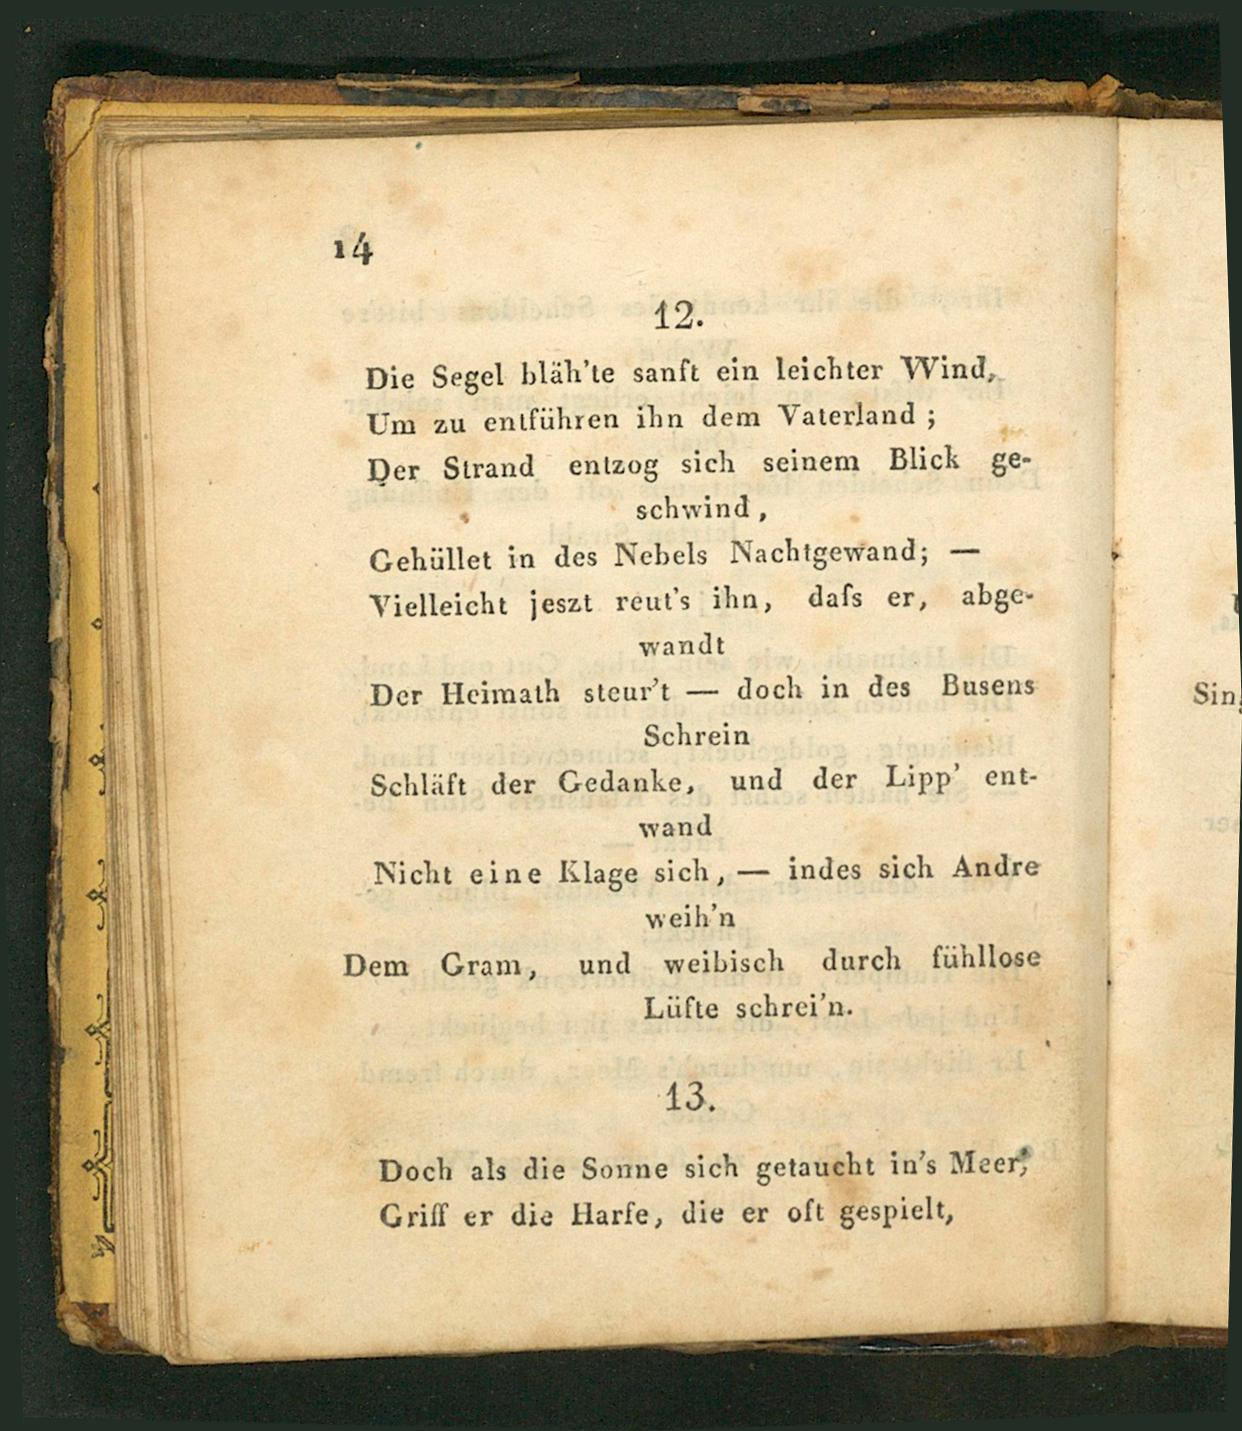 14
12.
Die Segel bläh'te sanft ein leichter Wind,
Um zu entführen ihn dem Vaterland ;
Der Strand entzog sich seinem Blick ge-
schwind ,
Gehüllet in des Nebels Nachtgewand; —
Vielleicht jeszt reut's ihn, daſs er, abge-
wandt
Der Heimath steur't — doch in des Busens
Schrein
Schläft der Gedanke, und der Lipp' ent-
wand
Nicht eine Klage sich, — indes sich Andre
weih'n
Dem Gram, und weibisch durch fühllose
Lüfte schrei'n.
13.
Doch als die Sonne sich getaucht in's Meer,
Griff er die Harfe, die er oft gespielt,